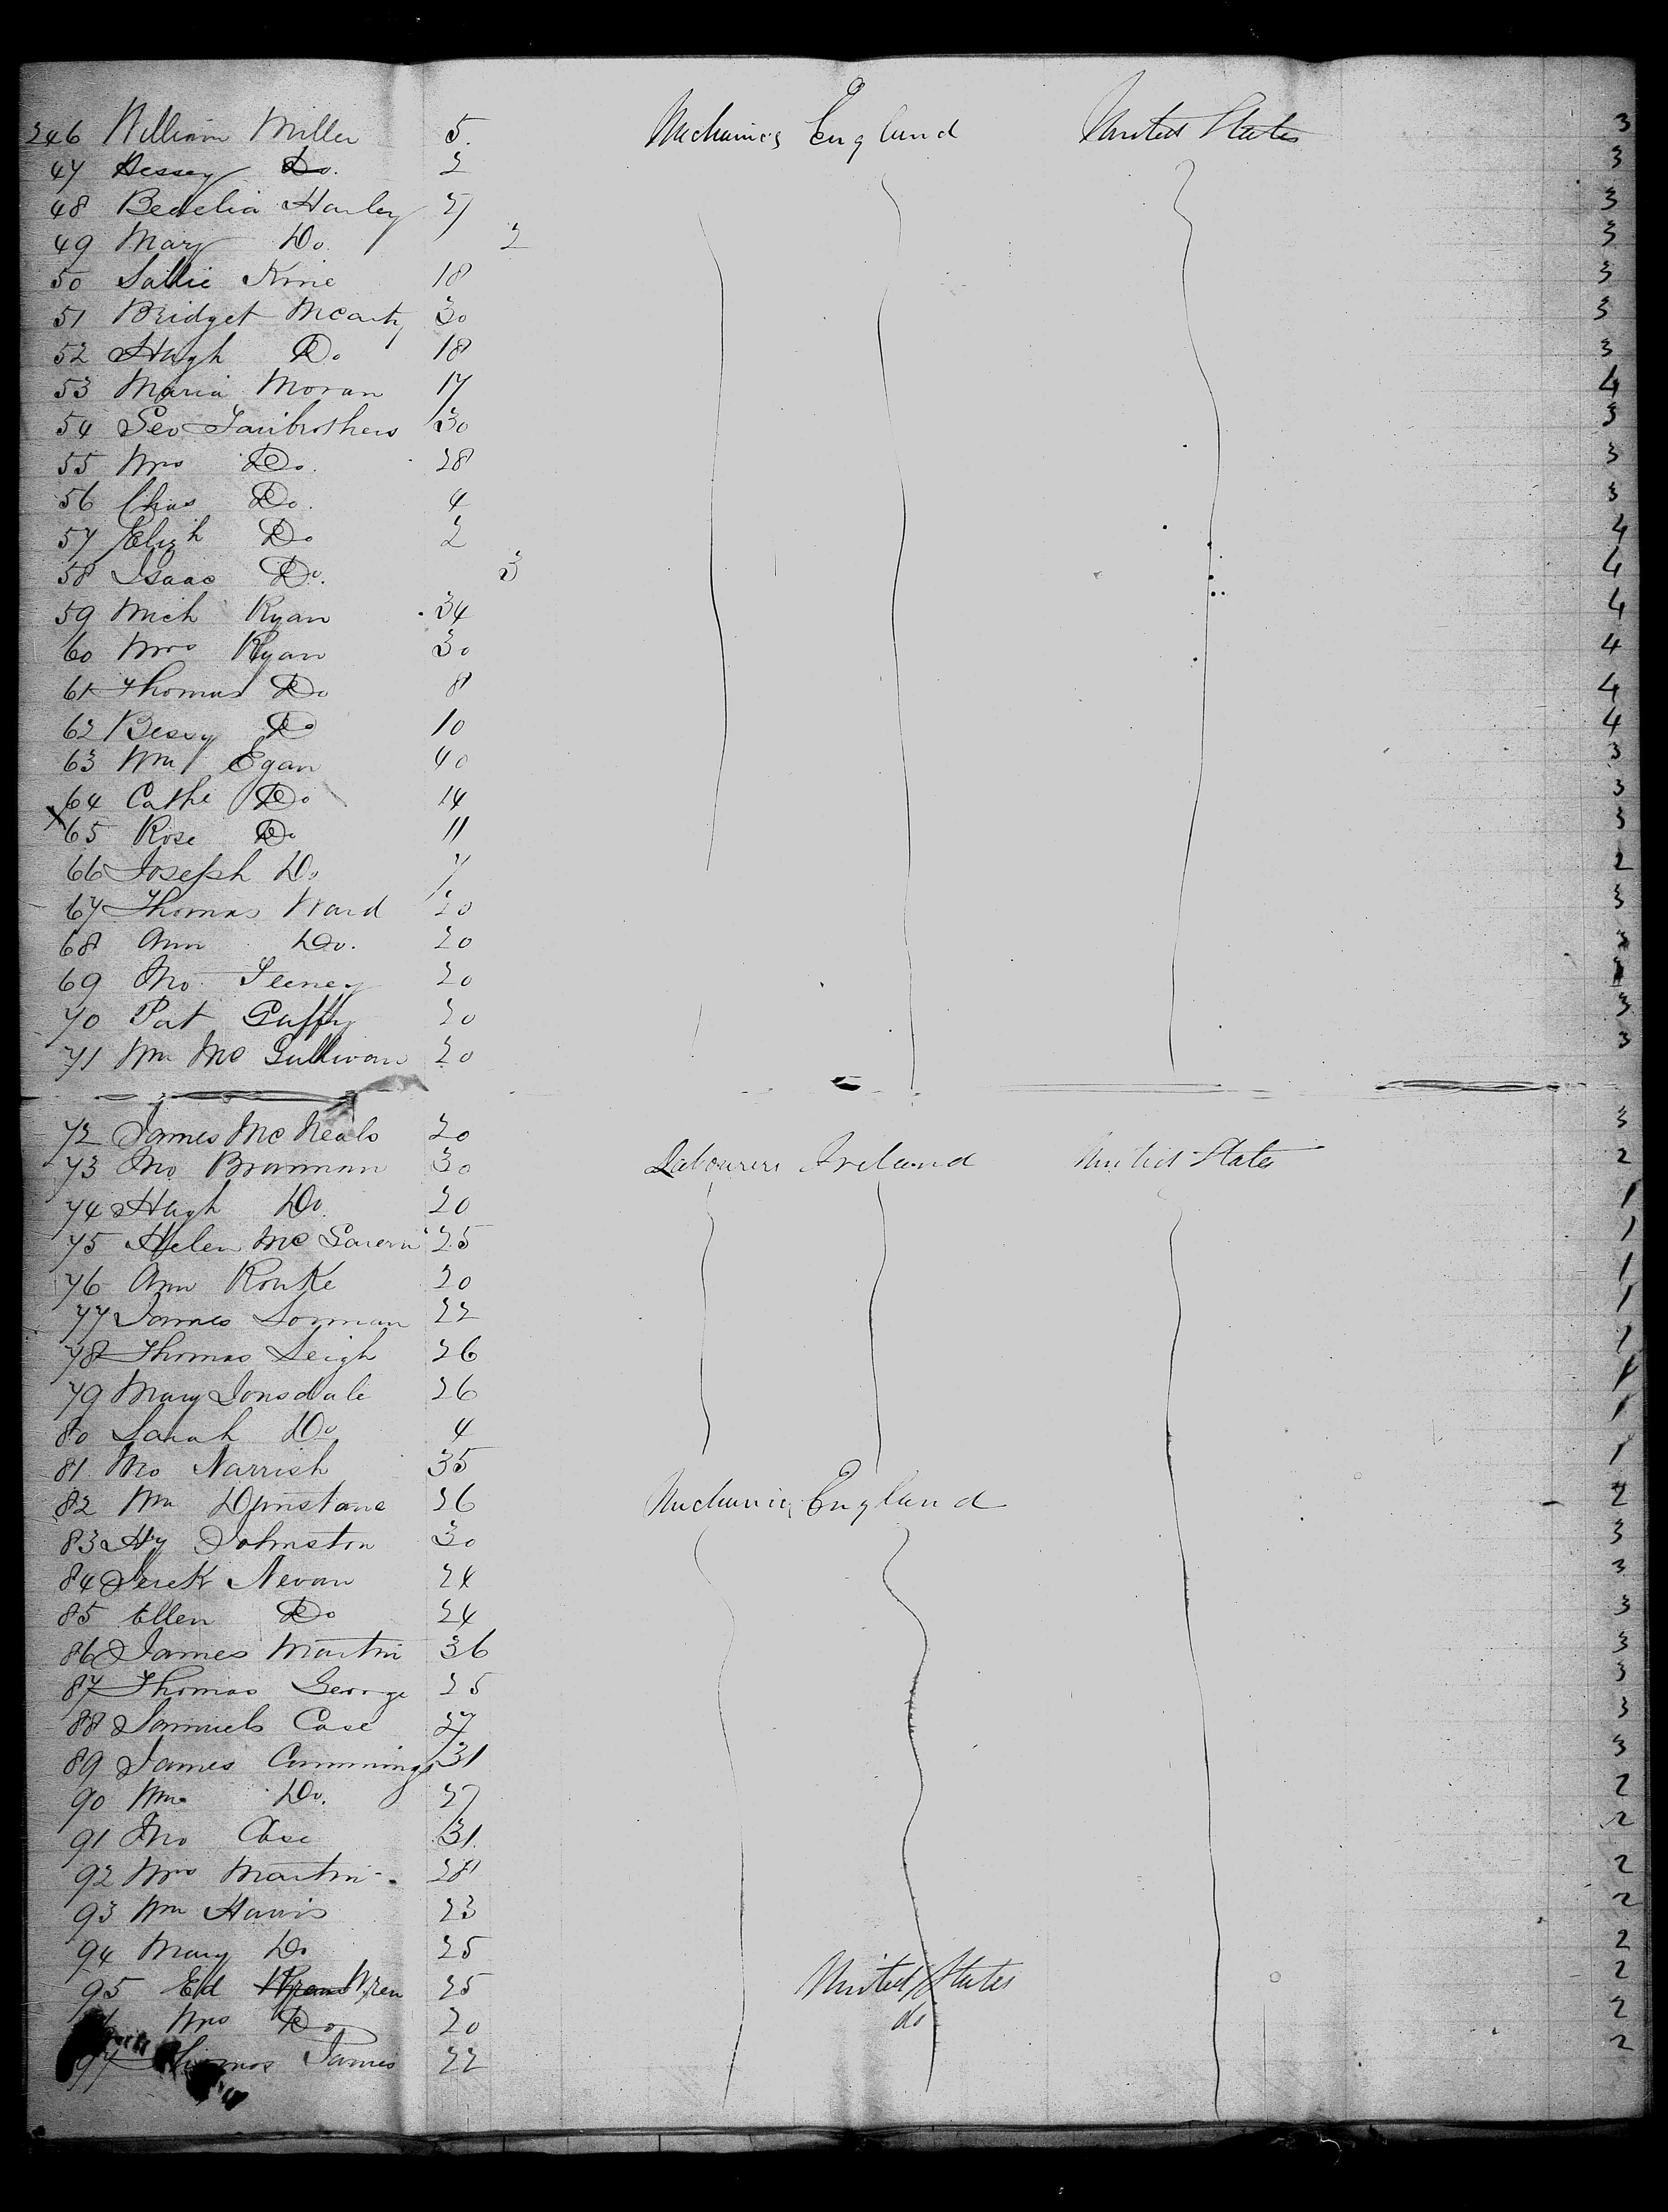 246 William Miller 5. Mechanics England United States 3
47 Hessey Do. 2 3
48 Bedelia Hanley 27 3
49 Mary Do. 2 3
50 Sallie Kine 18 3
51 Bridget Mcarty 30 3
52 Hugh Do 18 3
53 Maria Moran 17 4
54 Geo Fairbrothers 30 3
55 Mrs Do. 28 3
56 Chas Do. 4 3
57 Elizh Do 2 4
58 Isaac Do. 3 4
59 Mich Ryan 34 4
60 Mrs Ryan 30 4
61 Thomas Do 8 4
62 Bessy Do 10 4
63 Wm Egan 40 3
64 Cathe Do 14 3
x 65 Rose Do 11 3
66 Joseph Do 7 2
67 Thomas Ward 20 3
68 Ann Do. 20 3
69 Jno Feeney 20
70 Pat Guffy 20 3
71 Wm Mc Gullivan 20 3
72 James Mc Neals 20 3
73 Jno Brannan 30 Labourers Ireland United States 2
74 Hugh Do. 20 1
75 Helen Mc Gavern 25 1
76 Ann Rourke 20 1
77 James Gorman 22 1
78 Thomas Leigh 26 1
79 Mary Lonsdale 26 1
80 Sarah Do 4 1
81 Jno Narrish 35 1
82 Wm Dunstane 26 Mechanics England 2
83 Hy Johnston 30 3
84 Derek Nevan 24 3
85 Ellen Do 24 3
86 James Martin 36 3
87 Thomas George 25 3
88 Samuels Case 27 3
89 James Cummings 31 3
90 Wm Do. 27 2
91 Jno Case 31 2
92 Mrs Martin 28 2
93 Wm Harris 23 2
94 Mary Do 25 2
95 Ed Wren 25 United States 2
Mrs Do 20 do 2
97 Thomas James 22 2